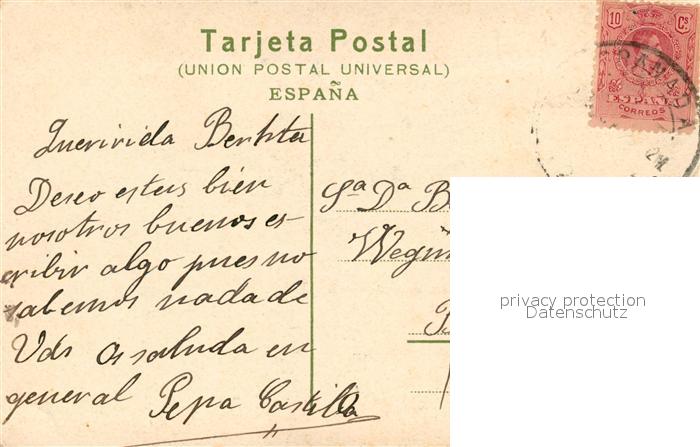 10 Cs
Tarjeta Postal
(UNION POSTAL UNIVERSAL)
ESPAÑA
ESPAÑA
CORREOS
GRANADA
Queririda Berhta
Deseo esteis bien
nosotros buenos es
cribir algo pues no
sabemos nada de
Vds os saluda en
general Pepa Castilla
Sª Dª B
privacy protection
Datenschutz